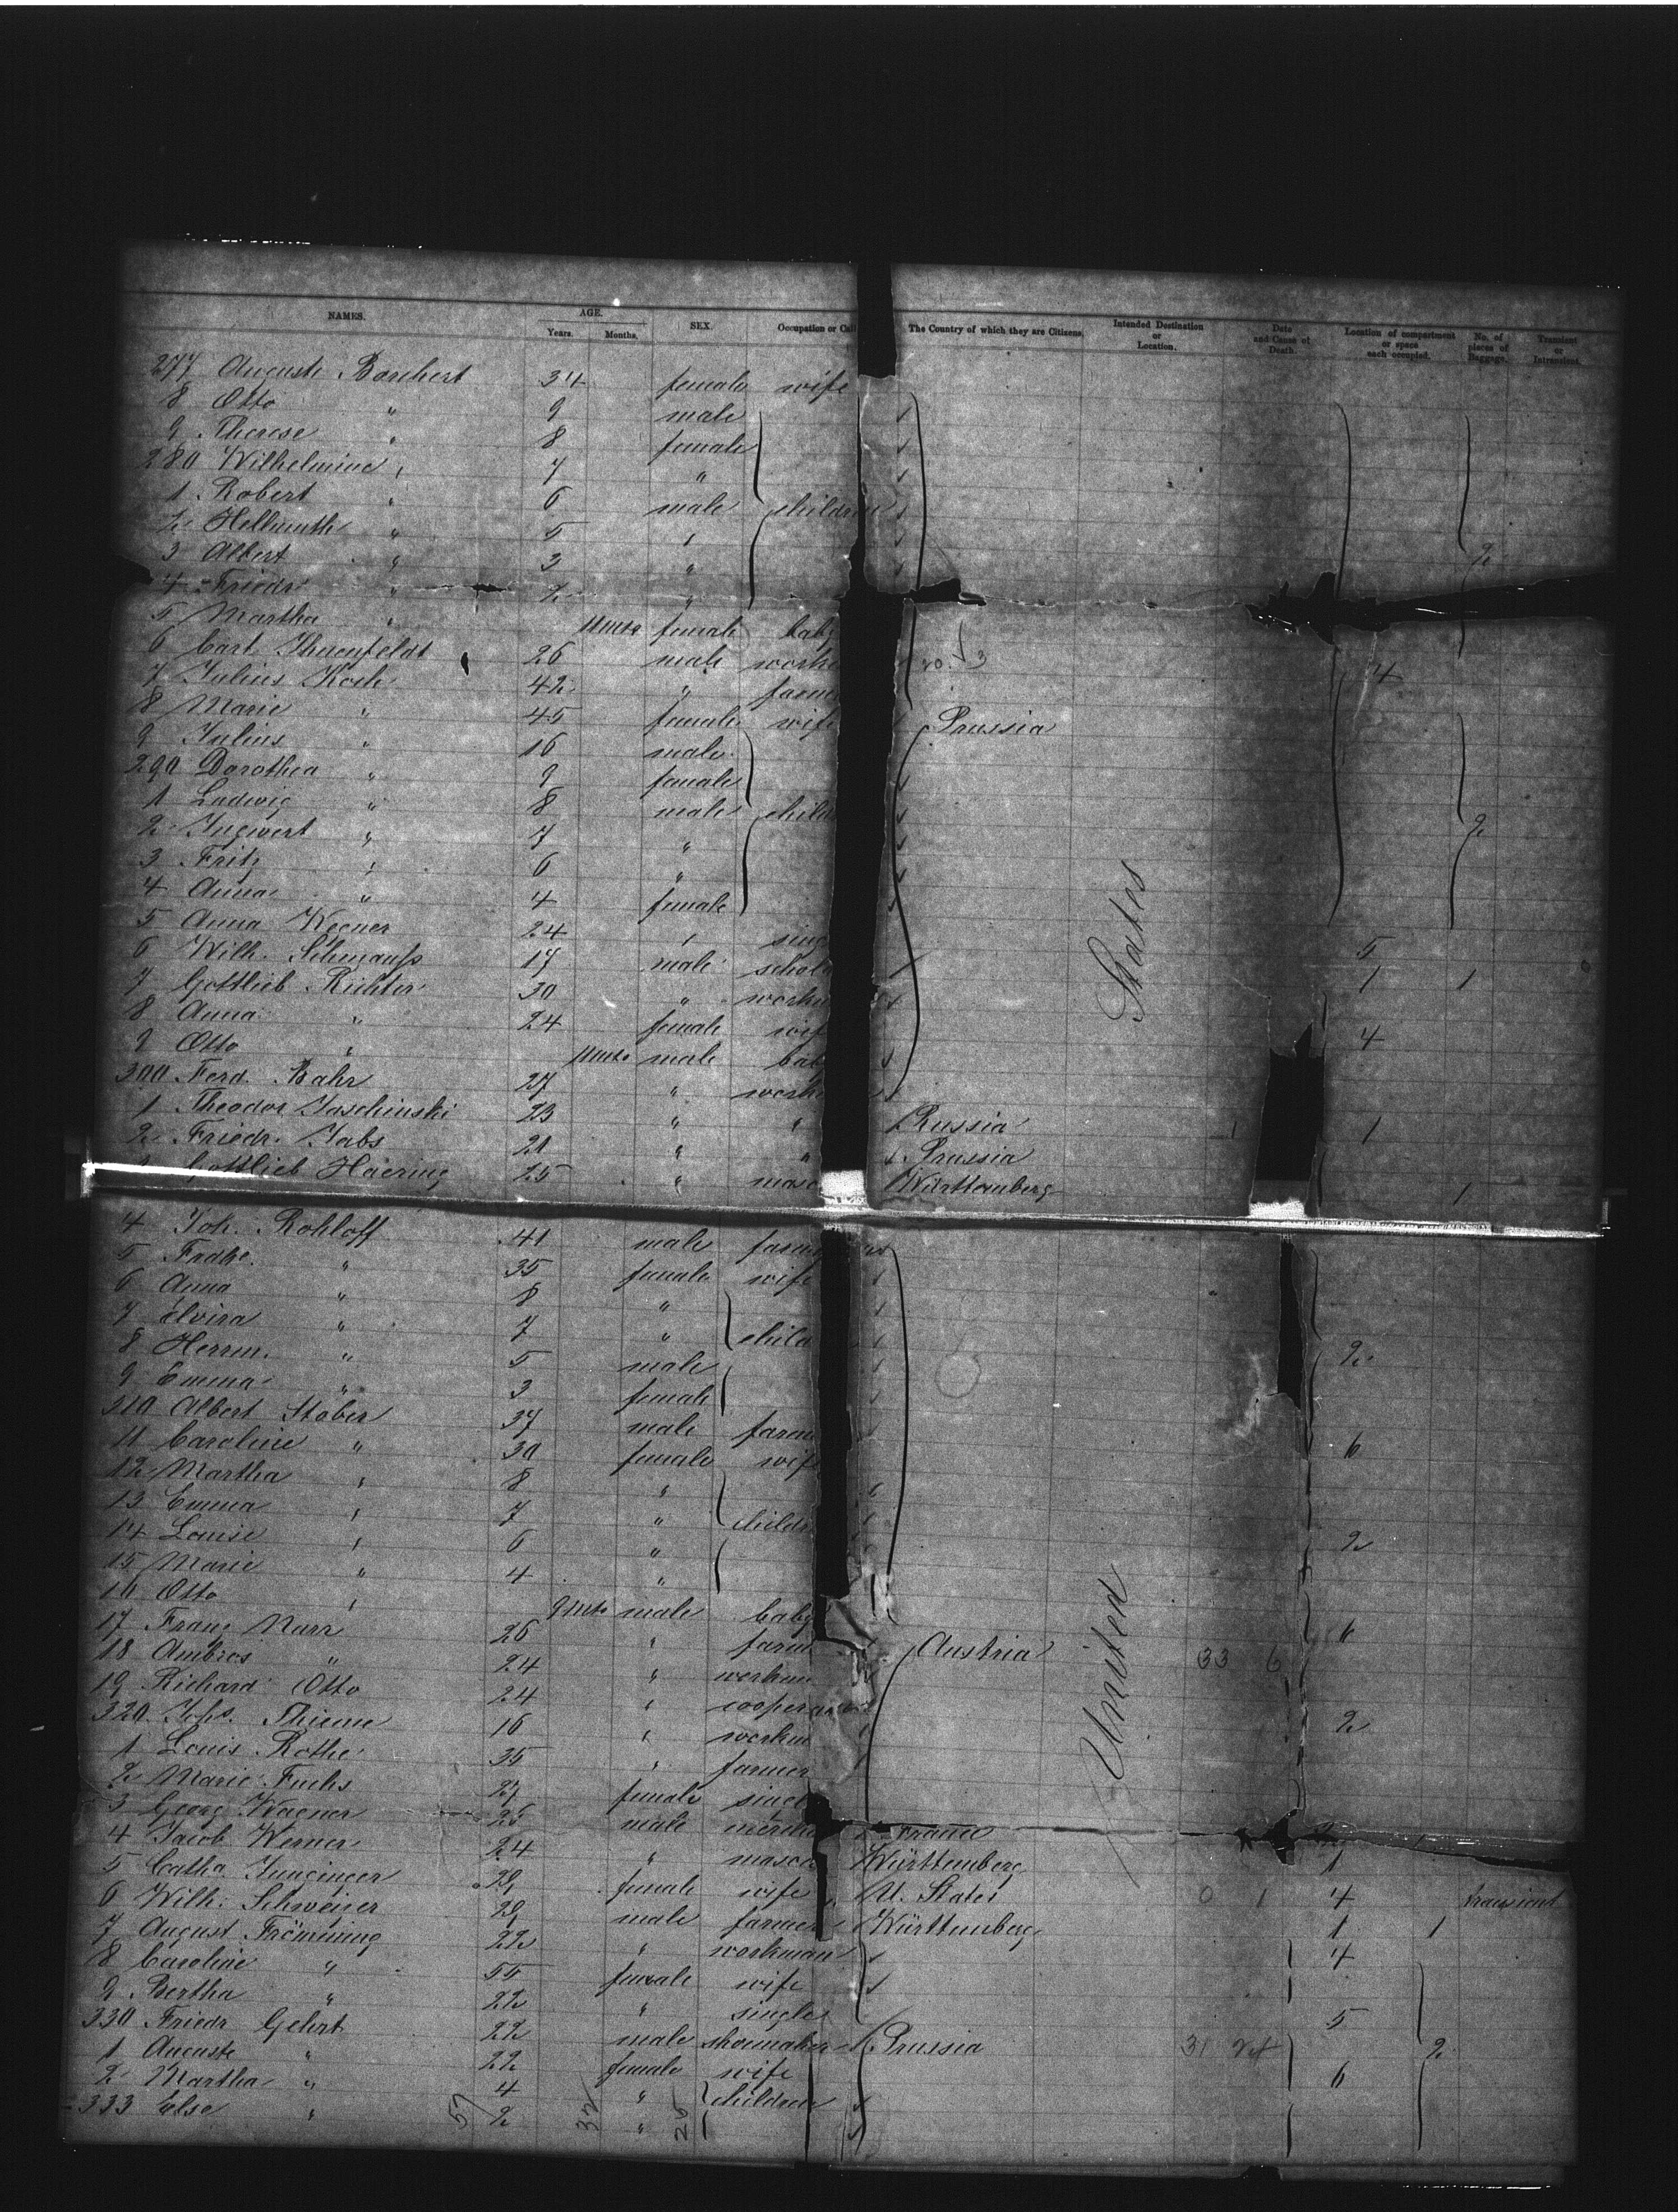 NAMES. AGE. Years. Months. SEX. Occupation or Cal The Country of which they are Citizens. Intended Destination or Location. Date and Cause of Death. Location of compartment or space each occupied. No. of pieces of Baggage. Transient or Intransient.
277 Auguste Borchert 34 female wife
8 Otto " 9 male
9 Therese " 8 female
280 Wilhelmine " 7 "
1 Robert " 6 male children
2 Hellmuth " 5 "
3 Albert " 3 " 2
4 Friedr " 2 "
5 Martha " 11 mts female baby
6 Carl Thurnfeldt 26 male workm
7 Julius Koch 42 " farme 4
8 Marie " 45 female wife Prussia
9 Julius " 16 male
290 Dorothea " 9 female
1 Ludwig " 8 male child
2 Ingwert " 7 " 2
3 Fritz " 6 "
4 Anna " 4 female
5 Anna Wegner 24 " sing 5
6 Wilh. Schmauss 17 male schol 1 1
7 Gottlieb Richter 30 " workm
8 Anna " 24 female wif 4
9 Otto " 11 mts male bab
300 Ferd. Bahr 27 " work
1 Theodor Jaschinski 23 " " Russia 1 1
2 Friedr. Jabs 21 " " Prussia
Gottlieb Haering 25 " maso Württemberg 1
States
4 Joh. Rohloff 41 male farm
5 Fradke " 35 female wife
6 Anna " 8 "
7 Elvira " 7 " child
8 Herrm. " 5 male 2
9 Emma " 3 female
310 Albert Stober 37 male farm
11 Caroline " 30 female wif 6
12 Martha " 8 "
13 Emma " 7 " childr
14 Louise " 6 " 2
15 Marie " 4 "
16 Otto " 9 mts male baby
17 Franz Narr 26 " farm Austria 33 6 6
18 Ambros " 24 " workm
19 Richard Otto 24 " cooper
320 Johs. Thieme 16 " workm 2
1 Louis Rothe 35 " farmer
2 Marie Fuchs 27 female singl
3 Georg Wagner 25 male mercha France
4 Jacob Werner 24 " mason Württemberg 1
5 Catha. Junginger 29 female wife U. States 0 1 4 transient
6 Wilh. Schweizer 29 male farmer Württemberg 1 1
7 August Frömming 22 " workman 4
8 Caroline " 55 female wife
9 Bertha " 22 " single 5
330 Friedr Gehrt 22 male shoemaker Prussia 31 2
1 Auguste " 22 female wife 6
2 Martha " 4 " children
333 Else " 2 "
United
57 32 25